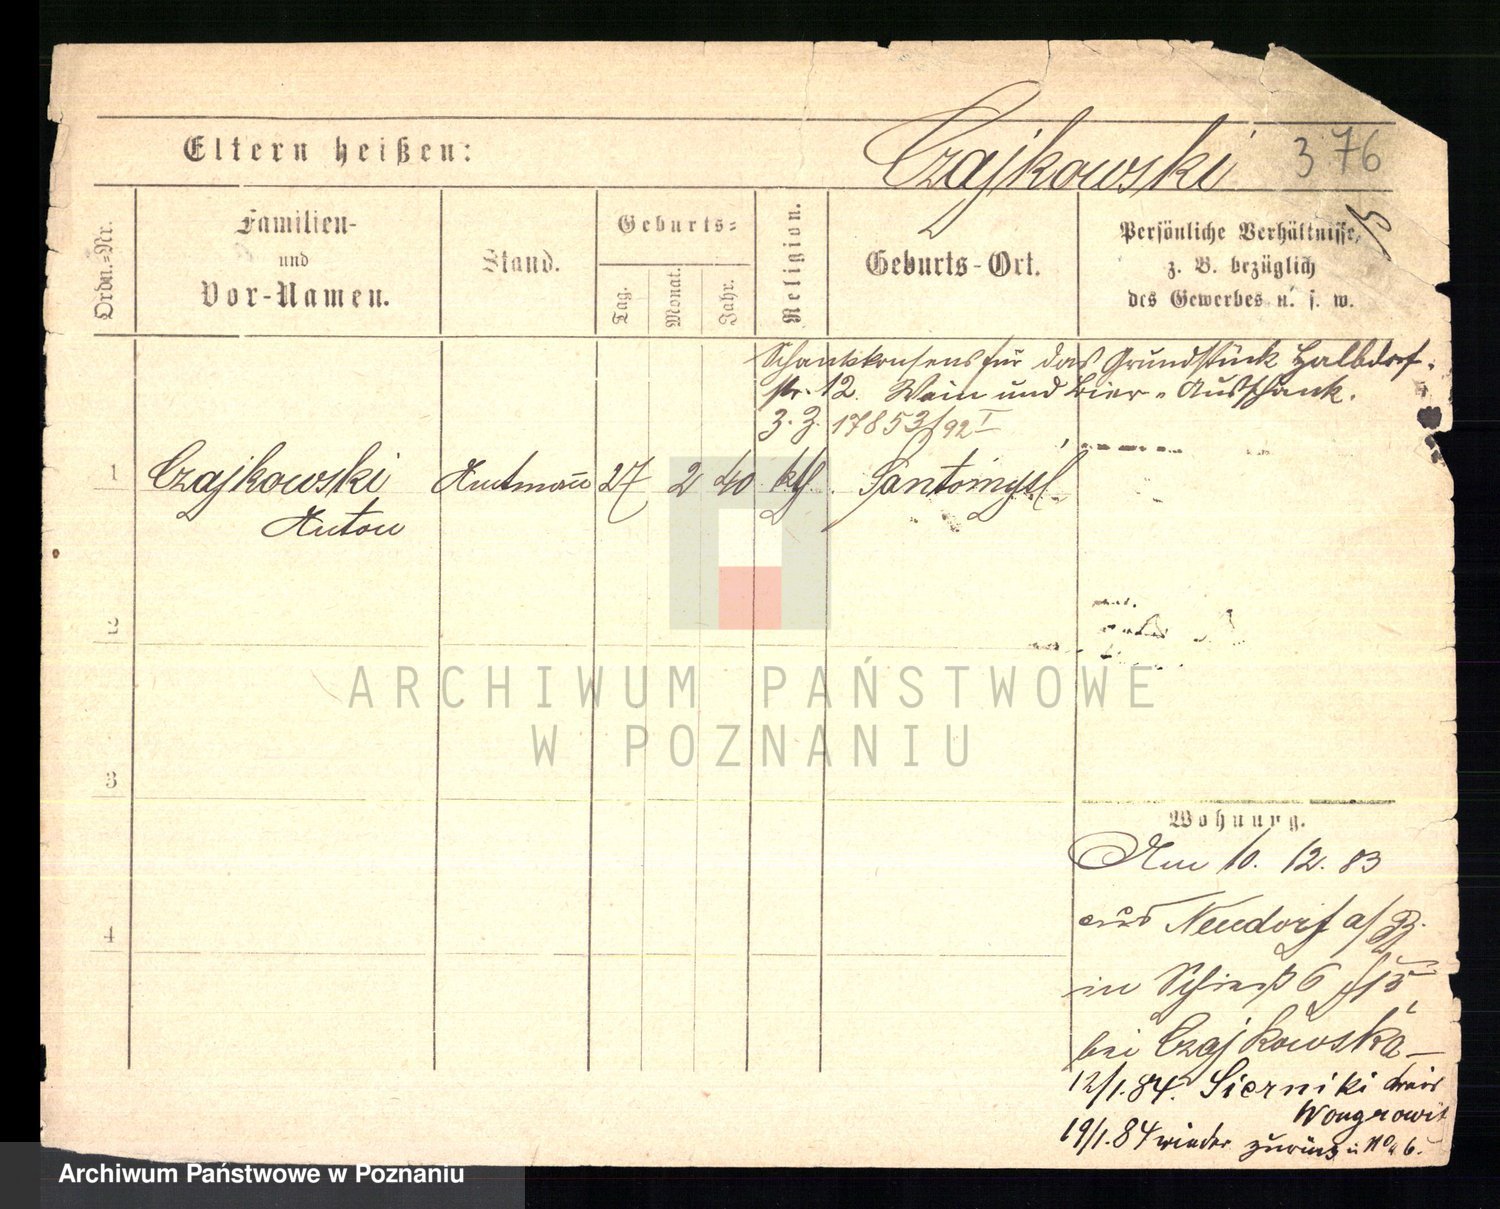 Eltern heißen:
Czajkowski
376
Ordn.=Nr.
Familien-
und
Vor-Namen.
Stand.
Geburts=
Tag.
Monat.
Jahr.
Religion.
Geburts-Ort.
Persönliche Verhältnisse,
z. B. bezüglich
des Gewerbes u. s. w.
Schankkonsens für das Grundstück Halbdorf-
str. 12. Wein und Bier-Ausschank.
17853/92 I
1 Czajkowski Amtmann 27 2 40 kth. Santomysl
Anton
2
3
4
Wohnung.
Am 10. 12. 83
aus Neudorf a/
in 6
bei Czajkowska
12/1.84. Sierniki Kreis
Wongrowitz
19/1.84 wieder zurück
ARCHIWUM PAŃSTWOWE
W POZNANIU
Archiwum Państwowe w Poznaniu